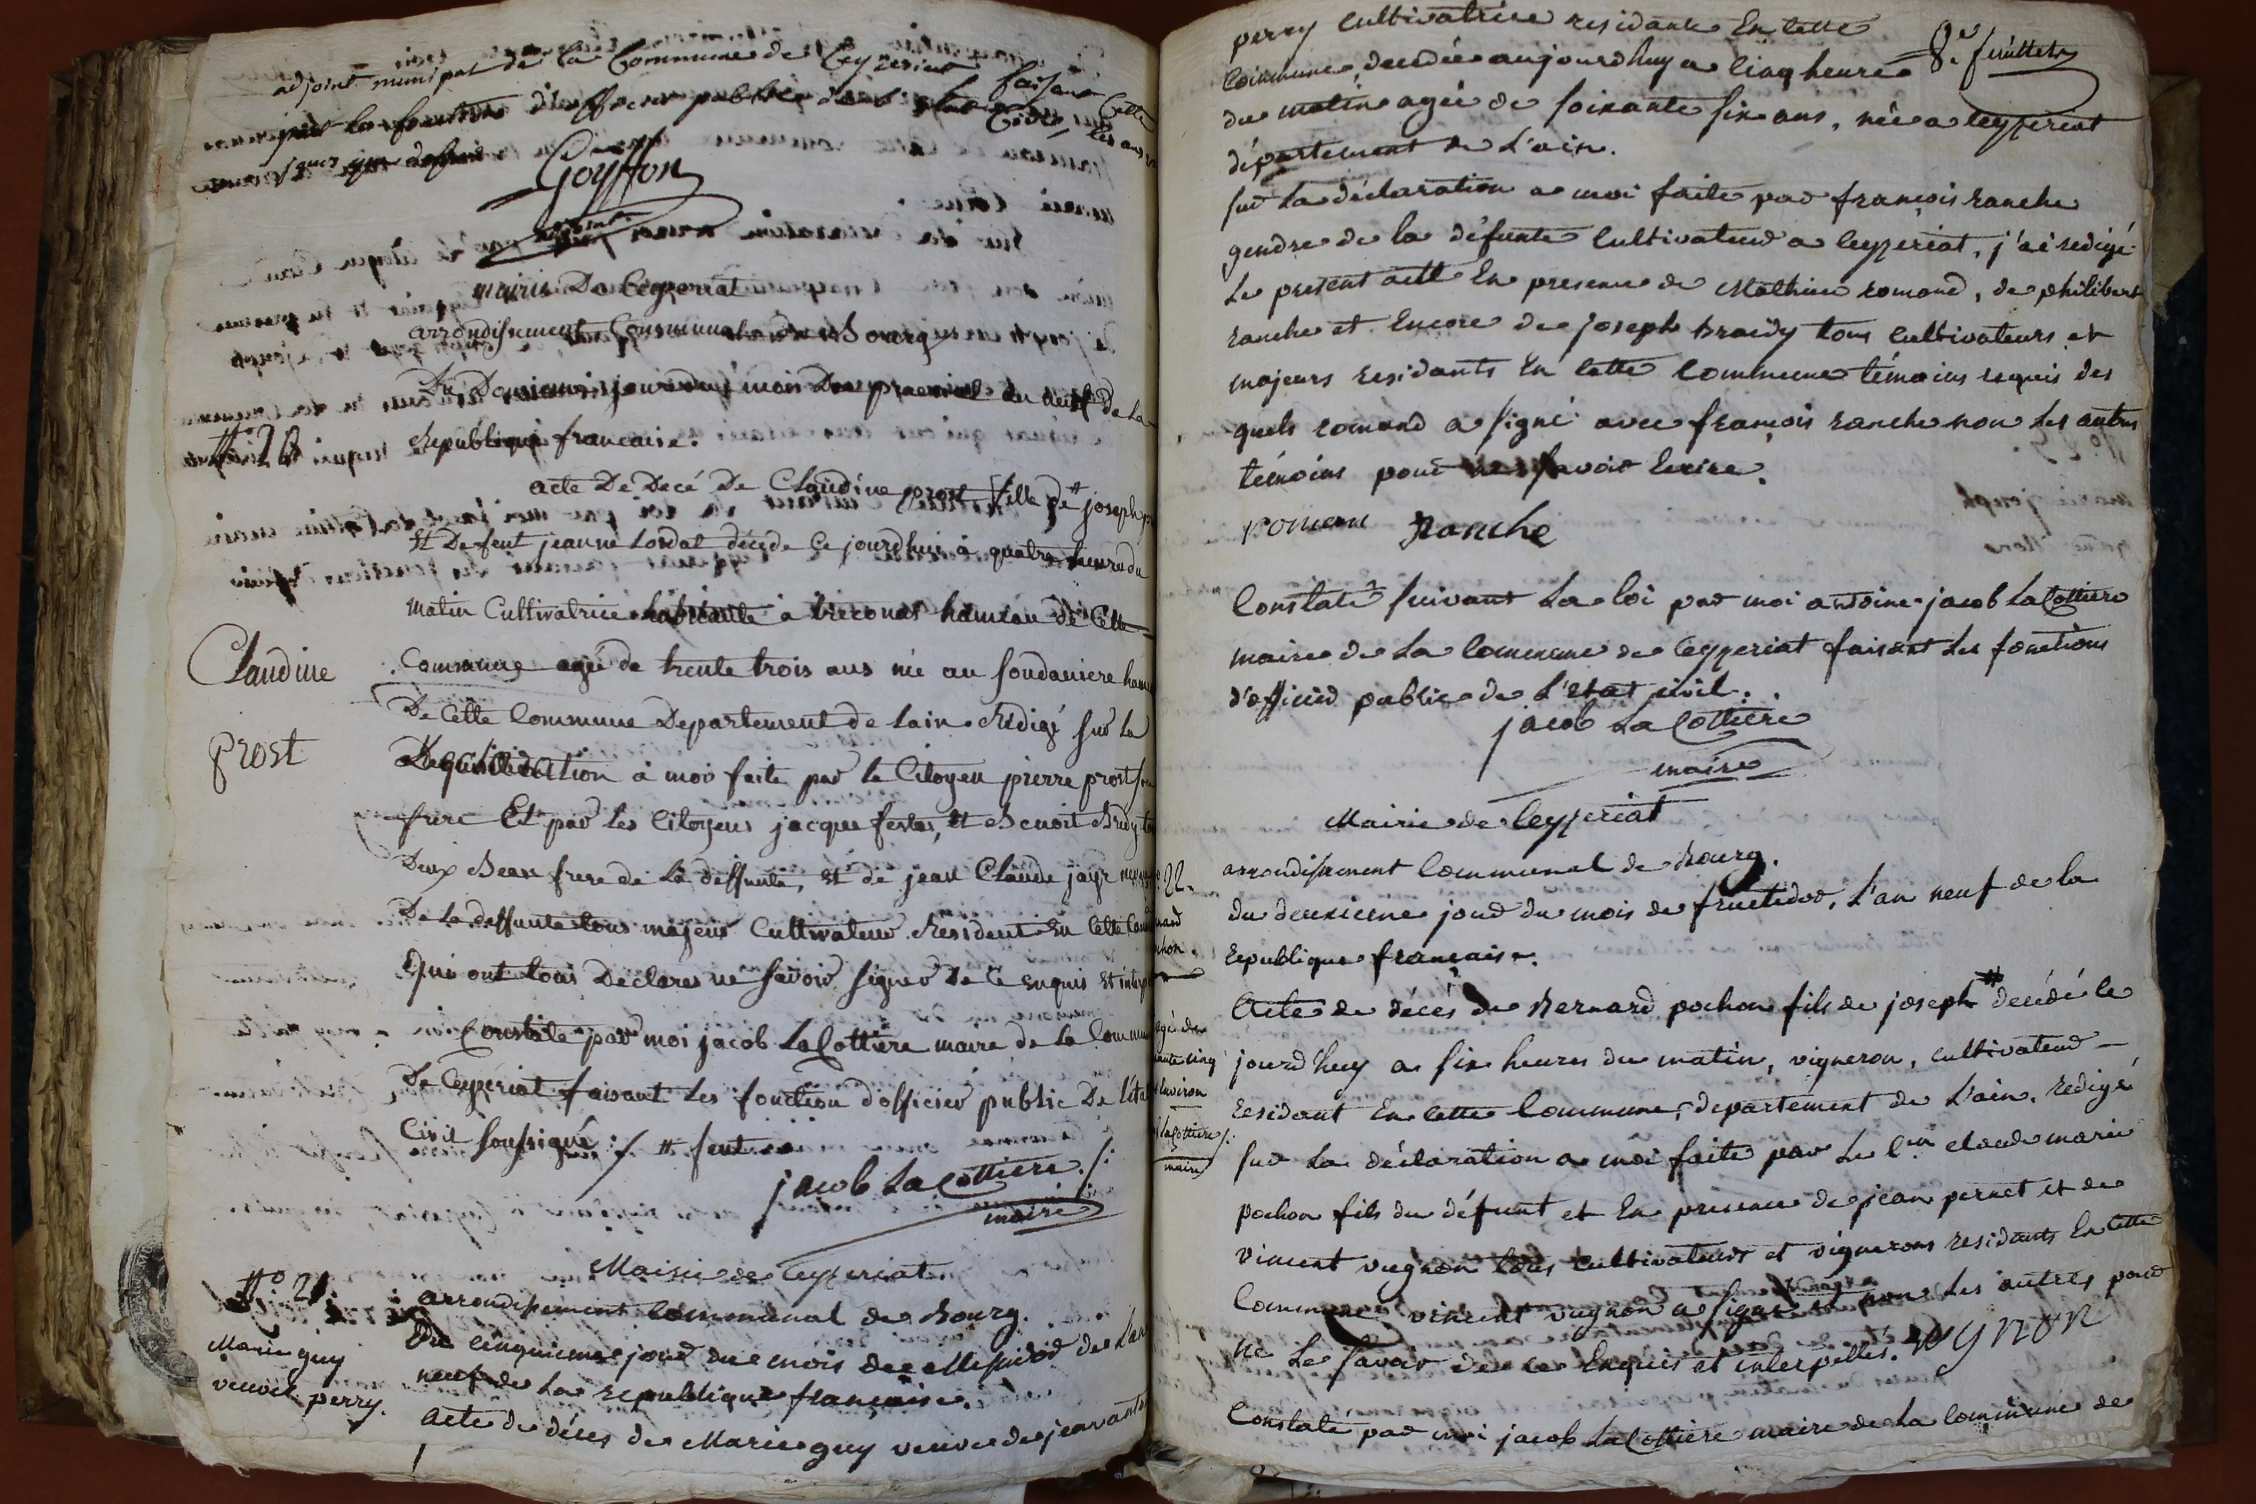 adjoint municipal de la Commune de Ceyzeriat faisant
les fonctions d'officier public de l'etat Civil
Goyffon
adjoint
Mairie De Ceyzeriat
arrondissement Communal de Bourg
Du Deuxieme jour du mois De prairial an neuf de La
N.o 20
Republique francaise.
acte De Decé De Claudine prost fille De # joseph
Et De feut jeanne Lordat décéde ce jourdhui à quatre heure du
matin Cultivatrice habitante à hameau de Cette
Claudine
Commune agé de trente trois ans né au soudaniere
prost
De Cette Commune Departement de Lain. Rédigé sur La
Déclaration à moi faite par le Citoyen pierre prost son
frere Et par Les Citoyens jacque et Benoit
Deux Beau frere de La deffunte, et de jean Claude jayr
De La deffunte tous majeur Cultivateur Resident En Cette
Qui ont tous Declares ne savoir signer De Ce enquis et
Constaté par moi jacob LaCottiere maire de La Commune
De Ceyzeriat faisant Les fonction d'officier public De L'état
Civil soussigné :/ # feut
jacob LaCottiere :/:
maire
Mairie de Ceyzeriat
N.o 21
arrondissement Communal de Bourg.
Marie guy
veuve perry.
Du cinquieme jour du mois de Messidor de L'an
neuf de La republique française.
acte de déces de Marie guy veuve de jean
8.e feuillet
perry Cultivatrice residante En Cette
Commune, decedée aujourdhuy a Cinq heures
du matin agée de soixante six ans, née a Ceyzeriat
département de L'ain.
sur La déclaration a moi faite par françois ranche
gendre de la défunte Cultivateur a Ceyzeriat, j'ai redigé
Le present acte En presence de Mathieu romand, de philibert
ranche et Encore de joseph braidy tous Cultivateurs et
majeurs residants En Cette Commune témoins requis des
quels romand a signé avec françois ranche non Les autres
témoins pour ne savoir Ecrire.
roman Ranche
Constaté suivant La loi par moi antoine-jacob LaCottiere
maire de La Commune de Ceyzeriat faisant Les fonctions
d'officier public de L'etat civil.
jacob LaCottiere
maire
Mairie de Ceyzeriat
22.
arrondissement Communal de Bourg.
du deuxieme jour du mois de fructidor, L'an neuf de la
republique française.
Acte de déces de Bernard pochon fils de joseph # decédé ce
jourd'huy a six heures du matin, vigneron, cultivateur
residant En Cette Commune, departement de L'ain. redigé
sur La déclaration a moi faite par Le C.en claude marie
pochon fils du défunt et En presence de jean pernet et de
vincent vugnon tous cultivateurs et vignerons residants En Cette
Commune vincent vugnon a signé et non Les autres pour
ne Le savoir de ce Enquis et interpellés. vugnon
Constaté par moi jacob LaCottiere maire de La Commune de